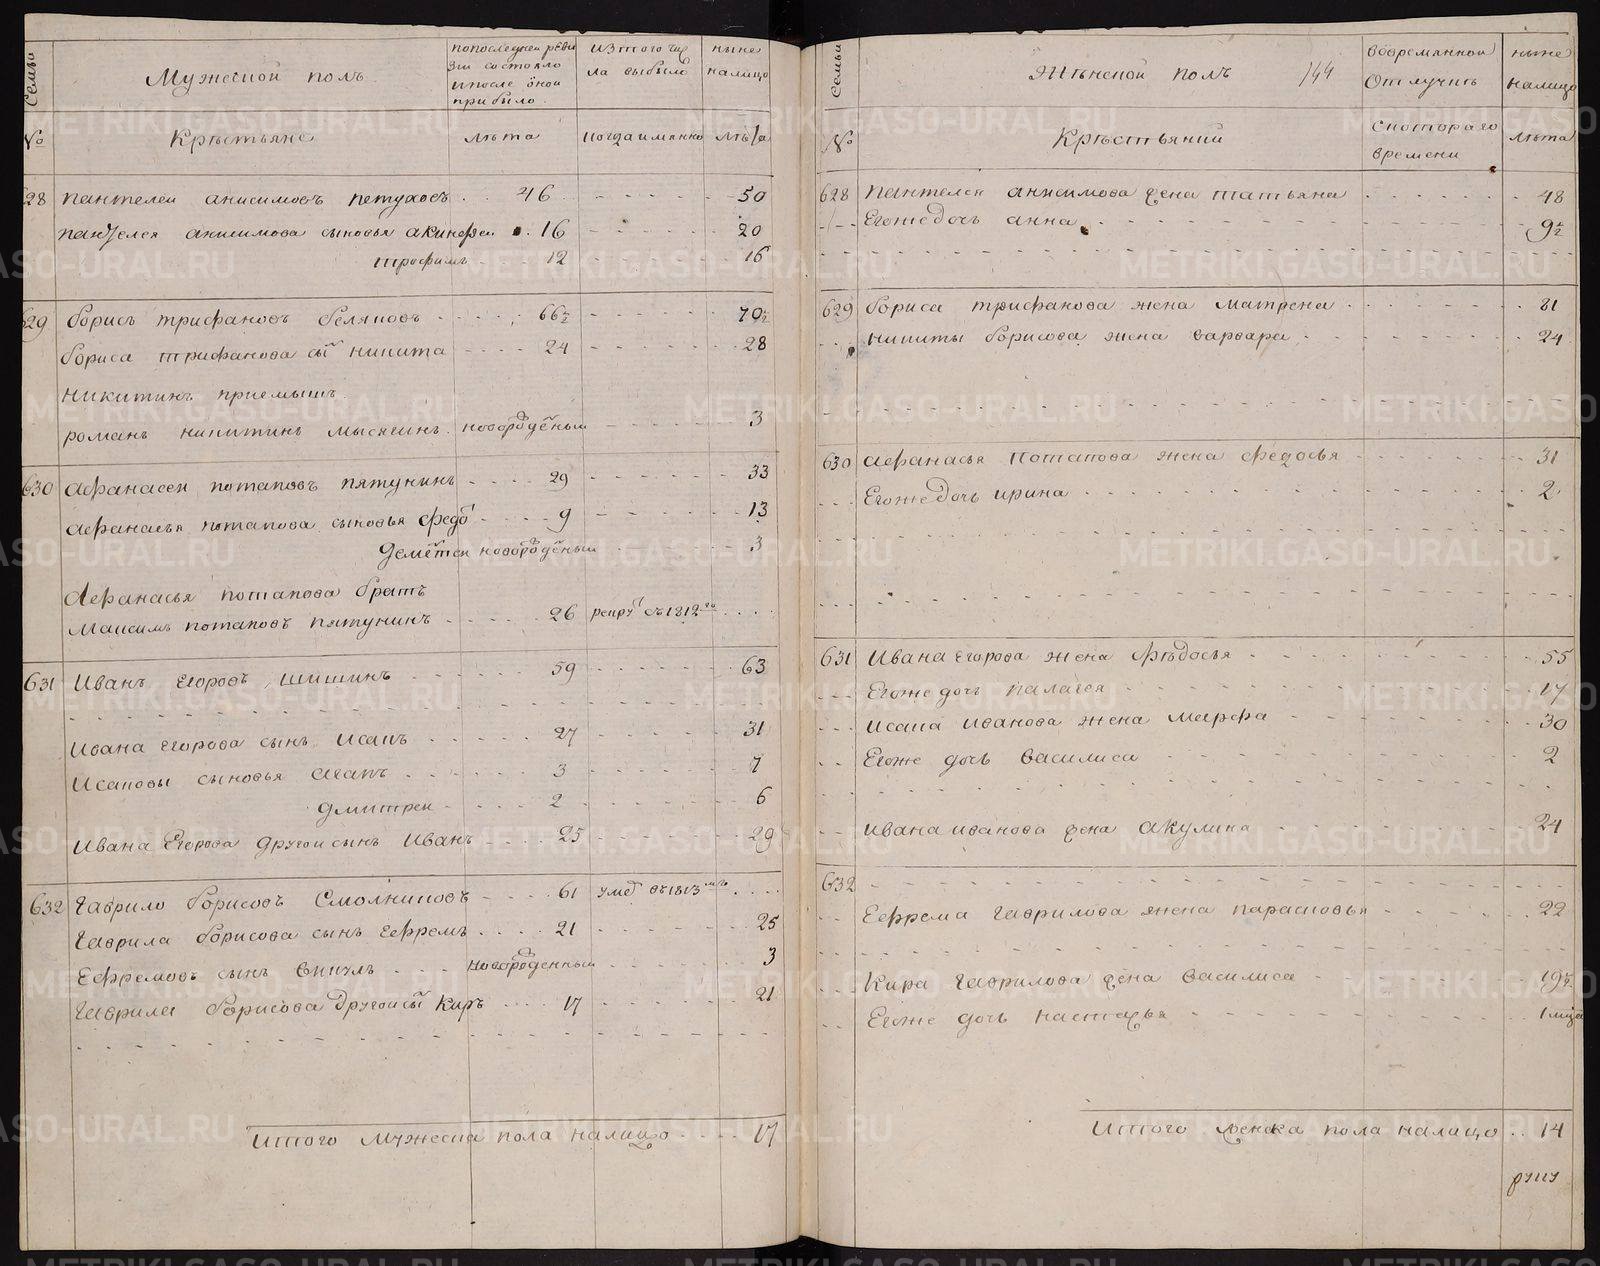 Семьи
Мужеской полъ
попоследней реви
зіи состояло
ипосле оной
прибыло
изтого чи
сла выбыло
ныне
налицо
№
Крестьяне
лета
когдаимянно
лета
628 пантелеи анисимовъ петуховъ 46 50
пантелея анисимова сыновья акинфеи 16 20
трофимъ 12 16
629 борисъ трифановъ беляковъ 66½ 70½
бориса трифанова сы̃ никита 24 28
никитинъ приемышъ
романъ никитинъ мысягинъ новорожденыи 3
630 афанасеи потаповъ пятунинъ 29 33
афанасья потапова сыновья федо̃ 9 13
дементеи новорожденыи 3
Афанасья потапова братъ
Максимъ потаповъ пятунинъ 26 рекру̃ въ1812го
631 Иванъ Егоровъ шишинъ 59 63
ивана егорова сынъ исакъ 27 31
исаковы сыновья агапъ 3 7
дмитреи 2 6
ивана Егорова другои сынъ Иванъ 25 29
632 гаврило борисовъ Смолниковъ 61 умѐр въ1813мъ
гаврила борисова сынъ ефремъ 21 25
Ефремовъ сынъ викулъ новорожденныи 3
гаврила борисова другои сы̃ киръ 17 21
Итого мужеска пола налицо 17
Семьи
Женской полъ
144
вовремянной
отлучке
ныне
налицо
№
Крестьянки
скотораго
времени
лета
628 пантелея анисимова жена татьяна 48
Егоже дочь анна 9½
629 бориса трифанова жена матрена 81
никиты борисова жена варвара 24
630 афанасья потапова жена федосья 31
Егоже дочь ирина 2
631 ивана егорова жена федосья 55
Егоже дочь палагея 17
исака иванова жена марфа 30
Егоже дочь василиса 2
ивана иванова жена акулина 24
632
Ефрема гаврилова жена парасковья 22
кира гаврилова жена василиса 19½
Егоже дочь настасья 1 меца
Итого женска пола налицо 14